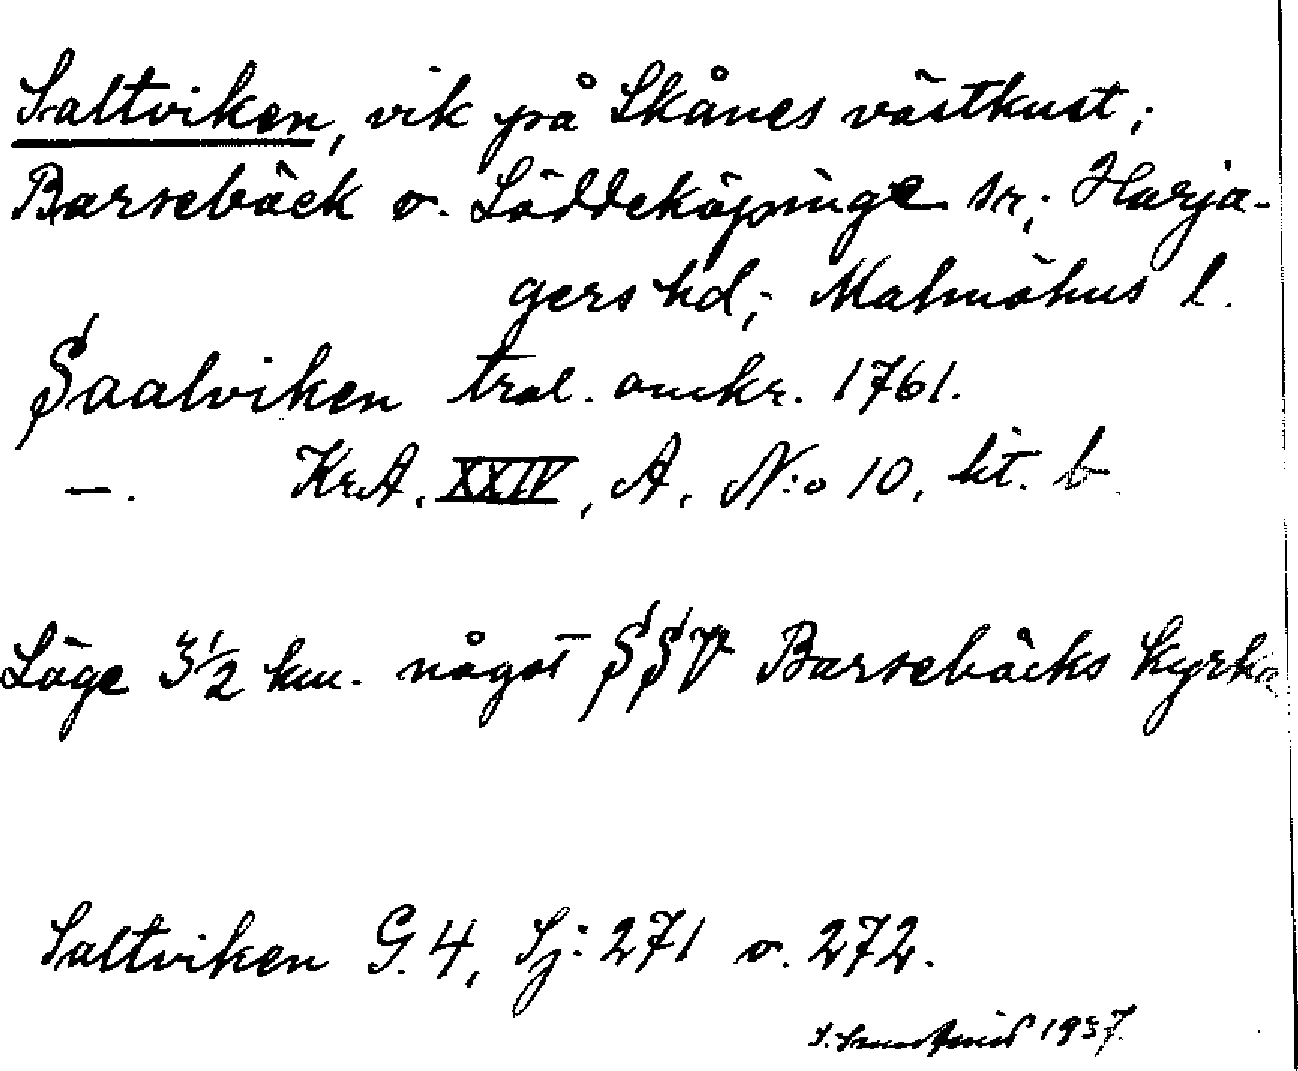 Saltviken, vik på Skånes västkust;
Barsebäck o. Löddeköpinge sn; Harja-
gers hd; Malmöhus l.
Saalviken trol. omkr. 1761.
—. Kr.A. XXIV, A. N:o 10, lit. b
Läge 3 1/2 km. något SSV Barsebäcks kyrka
Saltviken G. 4, Sj: 271 o. 272.
1937.